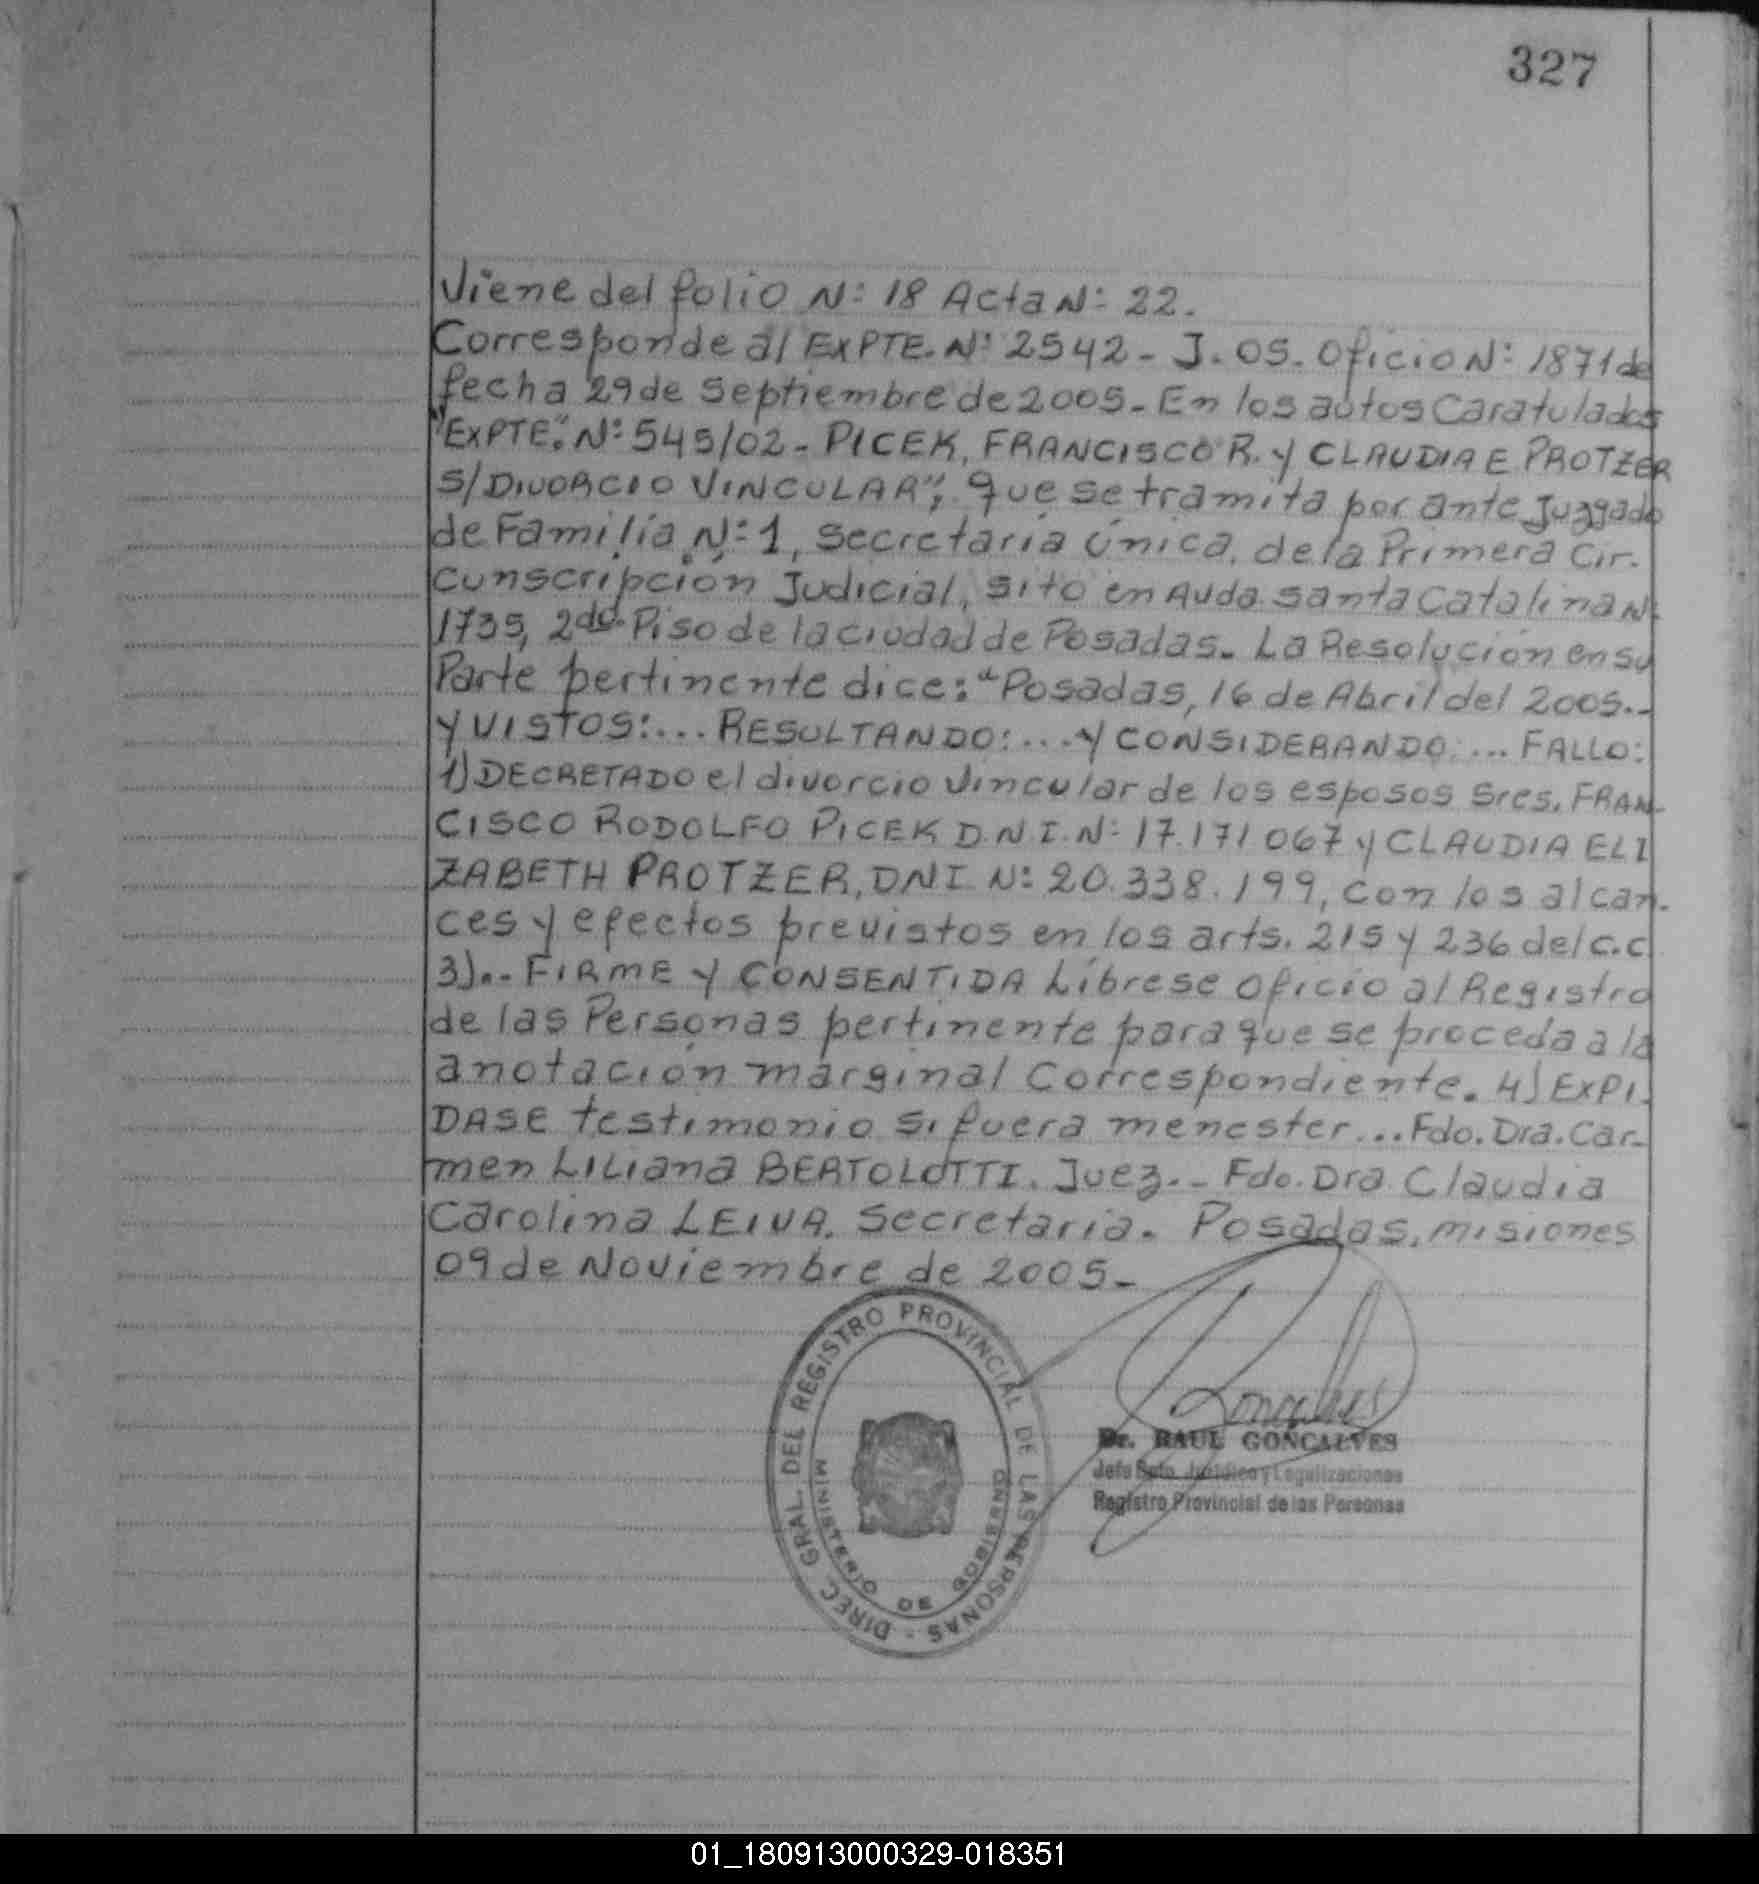 327
Viene del folio N: 18 Acta N: 22.
Corresponde al EXPTE. N: 2542 - J. 05. Oficio N: 1871 de
fecha 29 de septiembre de 2005. En los autos Caratulados
"EXPTE." N: 545/02 - PICEK, FRANCISCO R. y CLAUDIA E PROTZER
S/DIVORCIO VINCULAR", que se tramita por ante Juzgado
de Familia N: 1, Secretaría única, de la Primera Cir.
cunscripción Judicial, sito en Avda. Santa Catalina N:
1735, 2do. Piso de la ciudad de Posadas. La Resolución en su
Parte pertinente dice: "Posadas, 16 de Abril del 2005..
Y VISTOS:... RESULTANDO:... Y CONSIDERANDO:... FALLO:
1) DECRETADO el divorcio vincular de los esposos Sres. FRAN-
CISCO RODOLFO PICEK D.N.I. N: 17.171067 y CLAUDIA ELI
ZABETH PROTZER, DNI N: 20.338.199, con los alcan-
ces y efectos previstos en los arts. 215 y 236 del c.c.
3).. FIRME Y CONSENTIDA Líbrese oficio al Registro
de las Personas pertinente para que se proceda a la
anotación marginal Correspondiente. 4) EXPI.
DASE testimonio si fuera menester... Fdo. Dra. Car-
men LILiana BERTOLOTTI. Juez.- Fdo. Dra Claudia
Carolina LEIVA. Secretaria. Posadas, misiones
09 de Noviembre de 2005.-
DIREC. GRAL. DEL REGISTRO PROVINCIAL DE LAS PERSONAS -
MINISTERIO DE GOBIERNO
Goncalves
Dr. RAUL GONCALVES
Jefe Dpto. Jurídico y Legalizaciones
Registro Provincial de las Personas
01_180913000329-018351